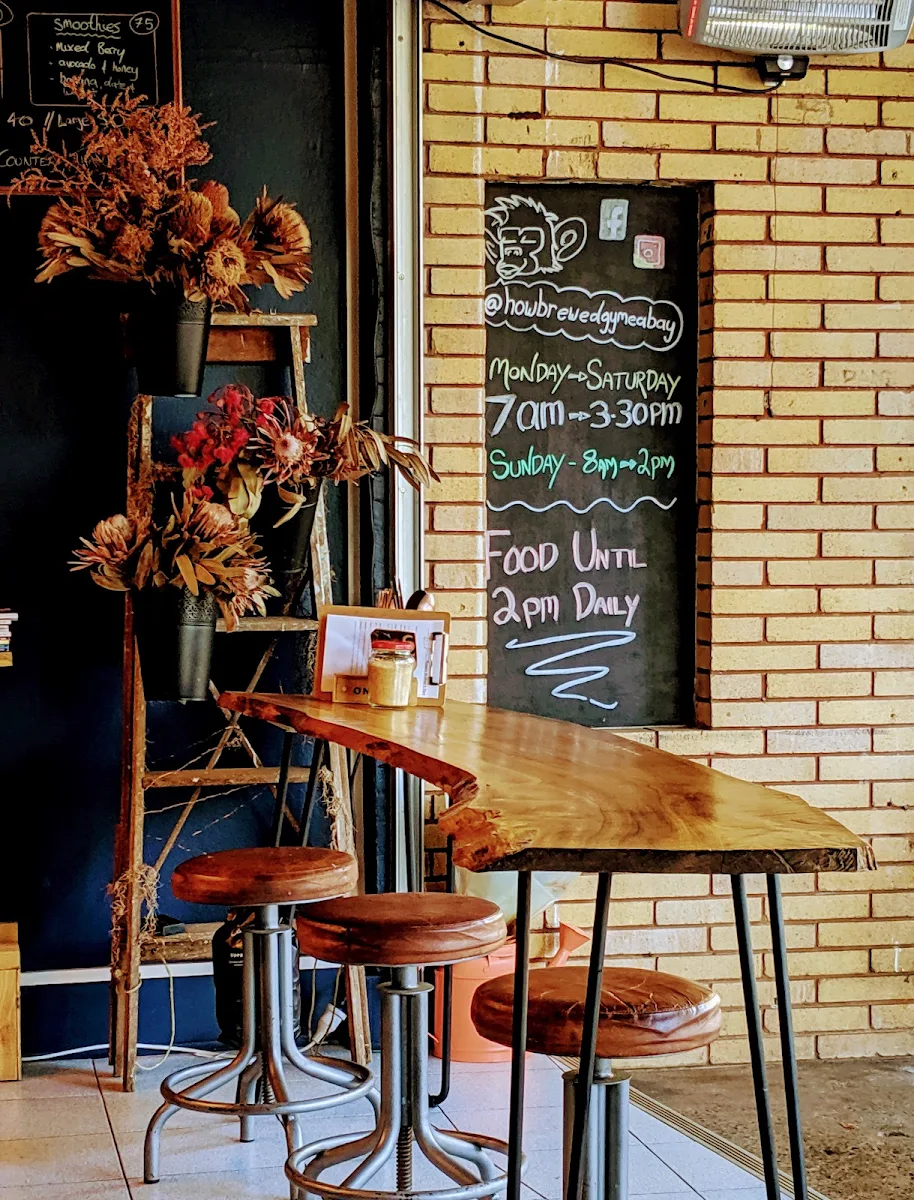 Smoothies 75
• Mixed Berry
• avocado & honey
40 // Large
COUNTER
@howbrewedgymeabay
MONDAY → SATURDAY
7am → 3·30pm
SUNDAY - 8am → 2pm
FOOD UNTIL
2pm DAILY